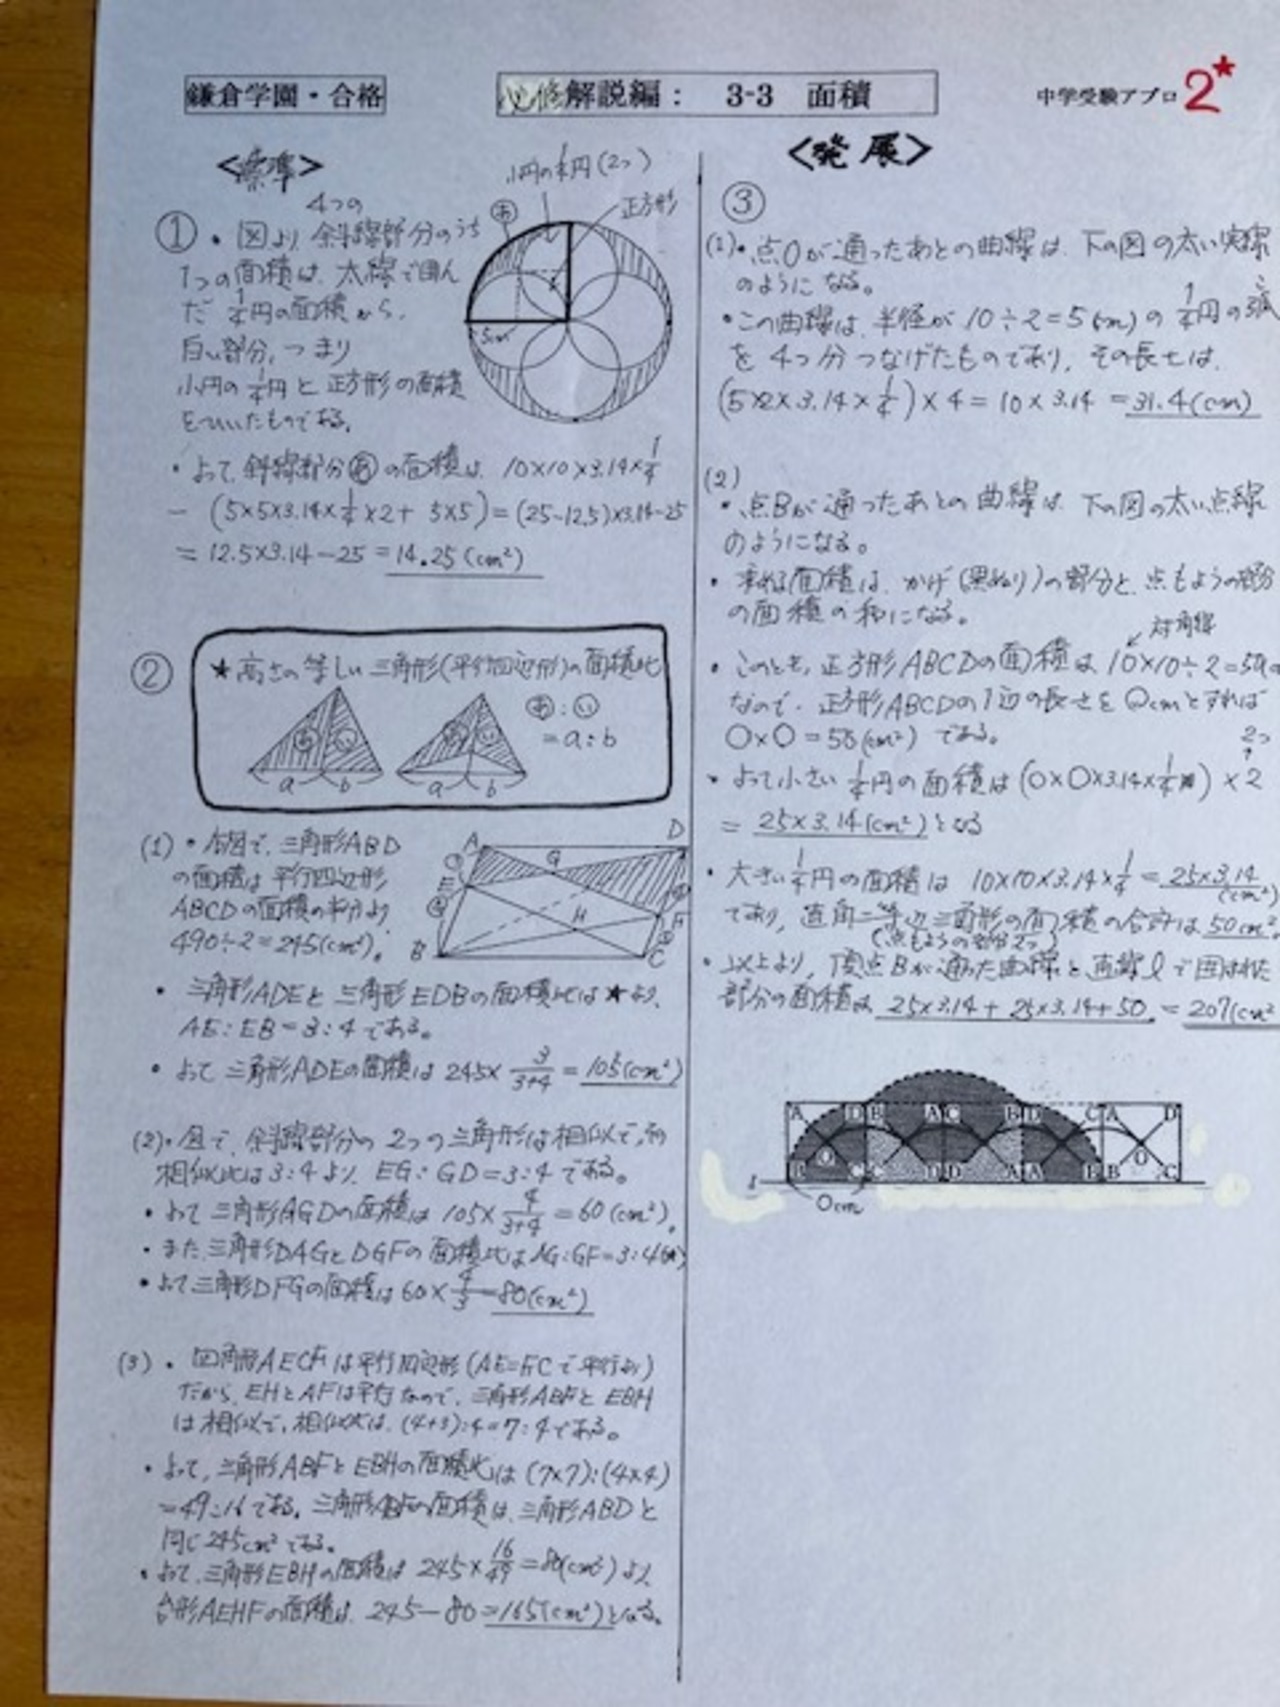 鎌倉学園・合格
必修解説編： 3-3 面積
中学受験アプロ 2★
<標準>
小円の1/4円(2つ)
正方形
あ
5cm
①・図より、4つの斜線部分のうち
1つの面積は、太線で囲ん
だ 1/4円の面積から、
白い部分、つまり
小円の1/4円と正方形の面積
をひいたものである。
・よって、斜線部分あの面積は、10×10×3.14×1/4
－(5×5×3.14×1/4×2+5×5)=(25-12.5)×3.14-25
=12.5×3.14-25=14.25(cm²)
②
★高さの等しい三角形(平行四辺形)の面積比
あ い
あ い
a b
a b
あ：い
=a：b
(1)・右図で、三角形ABD
の面積は平行四辺形
ABCDの面積の半分より
490÷2=245(cm²)。
A D
G
E
③
④
H
F
B C
・三角形ADEと三角形EDBの面積比は★より、
AE：EB=3：4である。
・よって三角形ADEの面積は 245×3/3+4=105(cm²)
(2)・図で、斜線部分の2つの三角形は相似で、その
相似比は3：4より、EG：GD=3：4である。
・よって三角形AGDの面積は 105×4/3+4=60(cm²)。
・また、三角形DAGとDGFの面積比はAG：GF=3：4
・よって三角形DFGの面積は60×4/3=80(cm²)
(3)・四角形AECFは平行四辺形(AE=FCで平行より)
だから、EHとAFは平行なので、三角形ABFとEBH
は相似で、相似比は、(4+3)：4=7：4である。
・よって、三角形ABFとEBHの面積比は(7×7)：(4×4)
=49：16である。三角形ABFの面積は、三角形ABDと
同じ245cm²である。
・よって、三角形EBHの面積は 245×16/49=80(cm²)より、
台形AEHFの面積は、245-80=165(cm²)となる。
<発展>
③
(1)・点Oが通ったあとの曲線は、下の図の太い実線
のようになる。
・この曲線は、半径が10÷2=5(cm)の1/4円の弧
を4つ分つなげたものであり、その長さは、
(5×2×3.14×1/4)×4=10×3.14=31.4(cm)
(2)
・点Bが通ったあとの曲線は、下の図の太い点線
のようになる。
・求める面積は、かげ(黒ぬり)の部分と、点もようの部分
の面積の和になる。
対角線
・このとき、正方形ABCDの面積は10×10÷2=50
なので、正方形ABCDの1辺の長さを○cmとすれば
○×○=50(cm²)である。
・よって小さい1/4円の面積は(○×○×3.14×1/4)×2
2つ
=25×3.14(cm²)となる
・大きい1/4円の面積は 10×10×3.14×1/4=25×3.14
(cm²)
であり、直角二等辺三角形の面積の合計は50cm²。
(点もようの部分2つ)
・以上より、頂点Bが通った曲線と直線ℓで囲まれた
部分の面積は、25×3.14+25×3.14+50 =207(cm²
A D B A C B D C A D
O O
B C C D D A A B B C
ℓ
○cm